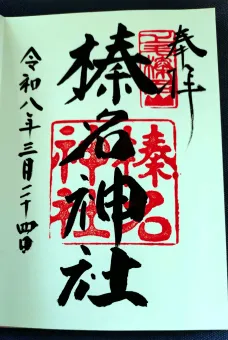 奉拝
榛名神社
令和八年三月二十四日
榛名
神社